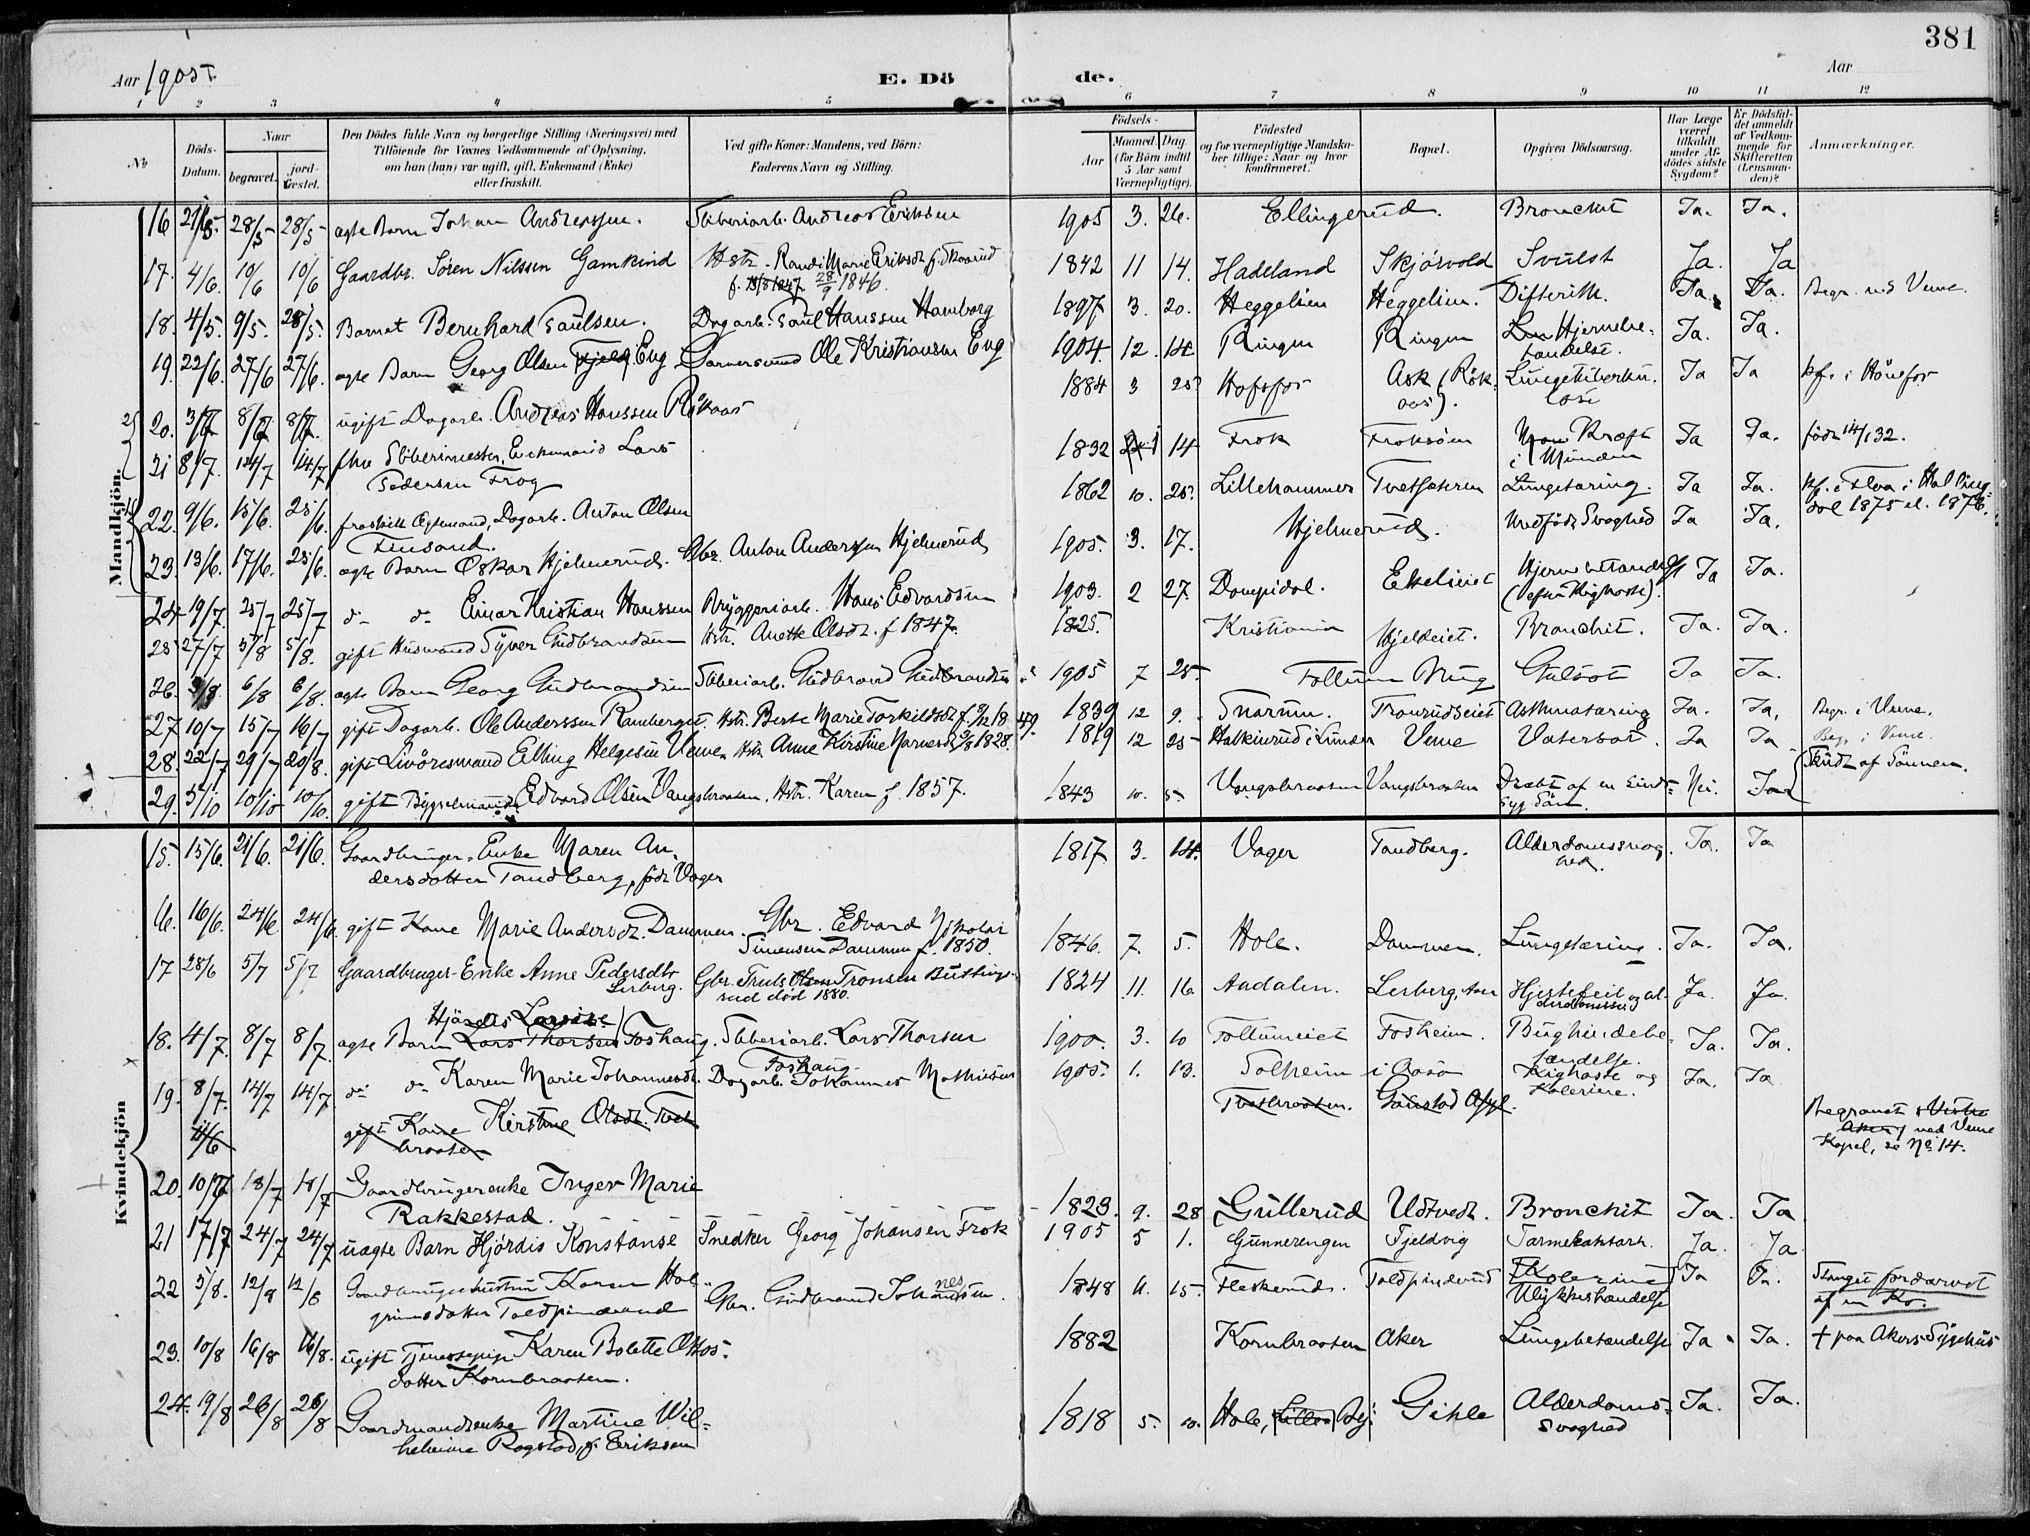 381
Aar 1905. E. Döde. Aar
1 2 3 4 5 6 7 8 9 10 11 12
No. Döds-Datum. Naar begravet. jordfæstet. Den Dödes fulde Navn og borgerlige Stilling (Næringsvei) med Tilföiende for Voxnes Vedkommende af Oplysning, om han (hun) var ugift, gift, Enkemand (Enke) eller fraskilt. Ved gifte Koner: Mandens, ved Börn: Faderens Navn og Stilling. Födsels- Aar Maaned. Dag. (for Börn indtil 5 Aar samt Værnepligtige). Födested og for værnepligtige Mandskaber tillige: Naar og hvor konfirmeret. Bopæl. Opgiven Dödsaarsag. Har Læge været tilkaldt under Afdödes sidste Sygdom? Er Dödsfaldet anmeldt af Vedkommende for Skifteretten (Lensmanden)? Anmærkninger.
Mandkjön.
16 21/5 28/5 28/5 ægte Barn Johan Andreassen. Sliberiarb. Andreas Eriksen 1905 3. 26. Ellingerud. Bronchit Ja. Ja.
17. 4/6. 10/6 10/6 Gaardbr. Sören Nilssen Gamkind Hstr. Randi Marie Eriksdt. f. Skaarud
f. 13/8 1847 28/9 1846. 1842 11 14. Hadeland Skjörvold Svulst Ja. Ja
18. 4/5. 9/5. 28/5. Barnet Bernhard Paulsen. Dagarb. Paul Hanssen Hamborg 1897 3. 20. Heggelien Heggelien. Difterith. Ja. Ja. Begr. ved Veme.
19. 22/6. 27/6 27/6. ægte Barn Georg Olsen Fjeld Eng Ole Kristiansen Eng 1904 12. 14 Ringen Ringen Hjernebe-
tændelse. Ja. Ja.
20. 3/7 8/7 8/7. ugift Dagarb. Andreas Hanssen Rökaas 1884 3 25 Hofsfos Ask (Rök-
aas). Lungetuberku-
lose Ja Ja kfr. i Hönefos
21 8/7. 14/7 14/7 fhv Slibermester, Enkemand Lars
Pedersen Frog 1832 1 14 Frok Froksöen Kræft
i Ja Ja. född 14/1 32.
22. 9/6. 15/6. 25/6. fraskilt Ægtemand, Dagarb. Anton Olsen
Finsand. 1862 10. 25. Lillehammer Tvetsæteren Lungetæring. Ja Ja. kf. i Flaa i Halling-
dal 1875 el. 1876.
23. 13/6. 17/6. 25/6. ægte Barn Oskar Hjelmerud. Gbr. Anton Anderssen Hjelmerud 1905. 3. 17. Hjelmerud. Medfödt Svaghed Ja Ja.
24 19/7. 25/7 25/7 do do Einar Kristian Hanssen Bryggeriarb. Hans Edvardsen 1903. 2 27. Dompidal. Ekeleiet
(efter Kighoste). Ja Ja.
25 27/7 5/8 5/8. gift Husmand Syver Gudbrandsen Hstr. Anette Olsdt. f 1847. 1825. Kristiania Hjeldeiet. Bronchit. Ja. Ja.
26. 3/8. 6/8 6/8. ægte Barn Georg Gudbrandsen Sliberiarb. Gudbrand Gudbrandsen 1905 7 25. Follum Brug Gulsot Ja Ja.
27 10/7 15/7 16/7 gift Dagarb. Ole Anderssen Ramberget. Hstr. Berte Marie Torkildsdt. f. 9/12 18 49. 1839 12 9. Snarum. Tronrudseiet Asthmatæring Ja. Ja, Begr. i Veme.
28. 22/7 29/7 20/8. gift Livöresmand Elling Helgesen Veme. Hstr. Anne Kirstine 5/8 1828. 1819 12 25 Halkinrud i Lunder Veme Vatersot. Ja Ja Begr. i Veme.
29. 5/10 10/10 10/10. gift Bygselmand Edvard Olsen Vangsbraaten. Hstr. Karen f. 1857. 1843 10. 5. Vangsbraaten Vangsbraaten Dræbt af en sinds-
syg Sön. Nei. Ja af Sönnen.
Kvindekjön
15. 15/6. 21/6. 21/6. Gaardbruger-Enke Maren An-
dersdatter Tandberg, född Vager 1817 3. 14. Vager Tandberg. Alderdomssvag-
hed. Ja. Ja
16. 16/6. 24/6 24/6. gift Kone Marie Andersdt. Dammen. Gbr. Edvard Nikolai
Simensen Dammen f. 1850. 1846. 7. 5. Hole. Dammen. Lungetæring. Ja. Ja.
17 28/6 5/7 5/7 Gaardbruger-Enke Anne Pedersdtr
Lerberg. Gbr. Truls Olsen Tronsen Buttings-
rud död 1880. 1824 11. 16. Aadalen. Lerberg, Hjertefeil og al-
Ja. Ja.
18. 4/7. 8/7 8/7. ægte Barn Lars Thorsen Foshaug. Hjördis Lovise Sliberiarb. Lars Thorsen
Foshaug. 1900. 3. 10 Follumeiet Fosheim. Bughindebe-
tændelse. Ja. Ja.
19. 8/7. 14/7 14/7 do do Karen Marie Johannesdt. Dagarb. Johannes Mathisen 1905. 1. 13. Solheim i Aasa Kighoste og
Kolerine. Ja. Ja
11/6 gift Kone Kirstine Olsdt. Tvet-
braaten Tvetbraaten. Gaustad Asyl. Begravet i Vestre
Aker, ved Veme
Kapel, se No 14.
20. 10/7 18/7 18/7 Gaardbrugerenke Inger Marie
Rakkestad. 1823. 9. 28 Gullerud Udtvedt. Bronchit Ja. Ja
21 17/7 24/7 24/7 uægte Barn Hjördis Konstanse Snedker Georg Johansen Frok 1905 5 1. Gunnerengen Fjeldvig Tarmekatarh. Ja. Ja
22 5/8. 12/8 12/8 Gaardbrugerhustru Karen Hal-
grimsdatter Toldpinderud Gbr. Gudbrand Johannessen. 1848 11. 15. Fleskerud. Toldpinderud Kolerine
Ulykkeshændelse Ja Ja. Stanget fordærvet
af en Ko.
23. 10/8 16/8 16/8. ugift Tjenestepige Karen Bolette Olsos-
datter Kornbraaten. 1882 Kornbraaten Aker Lungebetændelse Ja. Ja. † paa Akers Sygehus
24. 19/8 26/8 26/8 Gaardmandsenke Martine Wil-
helmine Rogstad, f. Eriksen 1818 5. 10. Hole, By. Gihle Alderdoms-
svaghed Ja. Ja.